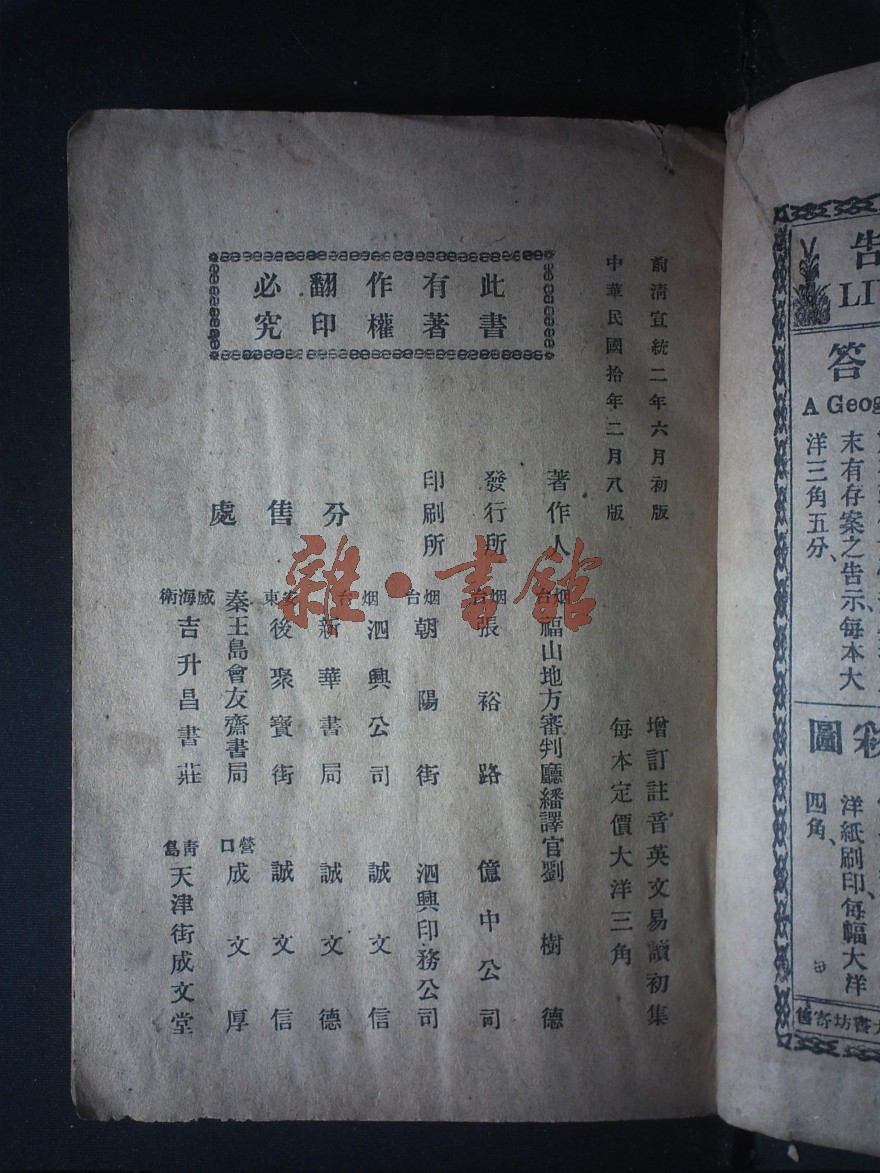 前清宣統二年六月初版
增訂註音英文易讀初集
中華民國拾年二月八版
每本定價大洋三角
此書有著作權翻印必究
著作人
烟台福山地方審判廳繙譯官劉樹德
發行所
烟台張裕路
億中公司
印刷所
烟台朝陽街
泗興印務公司
分售處
烟台
泗興公司
誠文信
新華書局
誠文德
安東後聚寶街
誠文信
秦王島會友齋書局
營口成文厚
威海衛吉升昌書莊
青島天津街成文堂
雜·書館
告
LI
答
A Geog
末有存案之告示每本大
洋三角五分
圖
洋紙刷印每幅大洋
四角